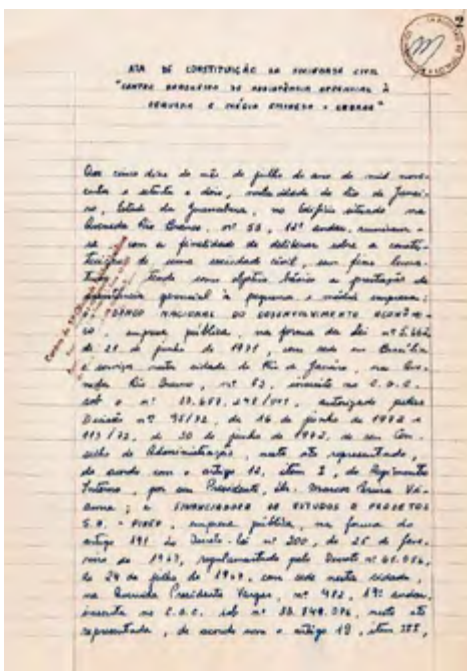 2
ATA DE CONSTITUIÇÃO DA SOCIEDADE CIVIL
"CENTRO BRASILEIRO DE ASSISTÊNCIA GERENCIAL À
PEQUENA E MÉDIA EMPRESA - CEBRAE"
Aos cinco dias do mês de julho do ano de mil nove-
centos e setenta e dois, nesta cidade do Rio de Janei-
ro, Estado da Guanabara, no Edifício situado na
Avenida Rio Branco, nº 53, 12º andar, reuniram-
se com a finalidade de deliberar sobre a consti-
tuição de uma sociedade civil, sem fins lucra-
tivos, tendo como objetivo básico a prestação de
assistência gerencial à pequena e média empresa:
o BANCO NACIONAL DO DESENVOLVIMENTO ECONÔMI-
CO, empresa pública, na forma da Lei nº 5.662
de 21 de junho de 1971, com sede em Brasília
e serviços nesta cidade do Rio de Janeiro, na Ave-
nida Rio Branco, nº 53, inscrito no C.G.C.
sob o nº autorizado pelas
Decisão nº 95/72, de 16 de junho de 1972 e
113/72, de 30 de junho de 1972, de seu Con-
selho de Administração, neste ato representado,
de acordo com o artigo 12, item I, do Regimento
Interno, por seu Presidente, Dr. Marcos Pereira Vi-
anna; a FINANCIADORA DE ESTUDOS E PROJETOS
S.A. - FINEP, empresa pública, na forma do
artigo 191 do Decreto-lei nº 200, de 25 de feve-
reiro de 1967, regulamentado pelo Decreto nº 61.056,
de 24 de julho de 1967, com sede nesta cidade,
na Avenida Presidente Vargas, nº 482, 19º andar,
inscrita no C.G.C. sob nº neste ato
representada, de acordo com o artigo 19, item III,